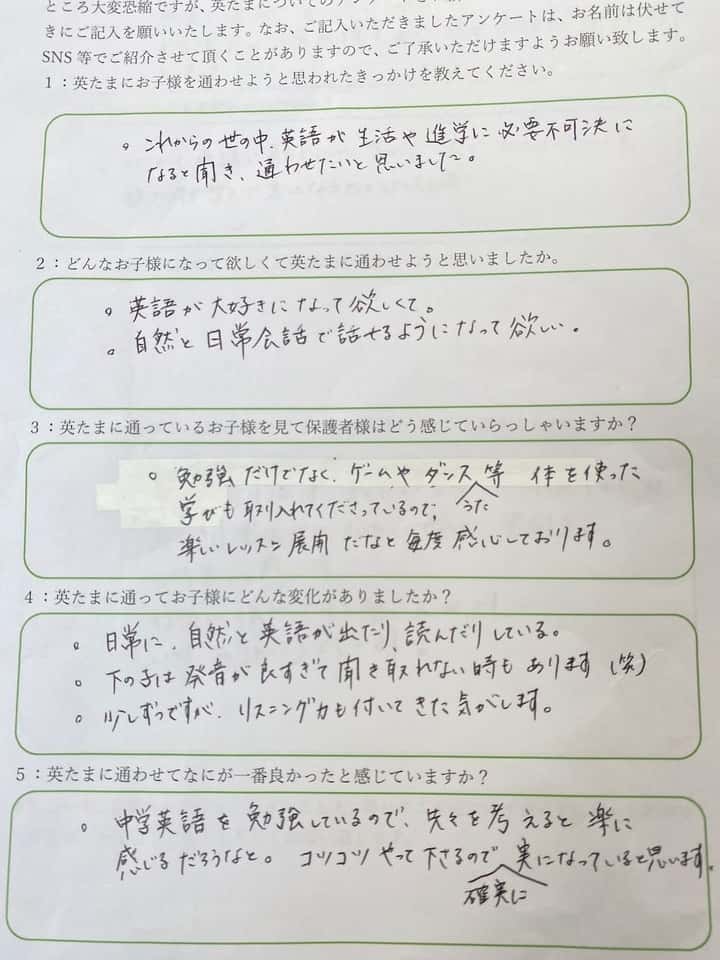 ところ大変恐縮ですが、英たまについてのアンケート
きにご記入を願いいたします。なお、ご記入いただきましたアンケートは、お名前は伏せて
SNS 等でご紹介させて頂くことがありますので、ご了承いただけますようお願い致します。
1：英たまにお子様を通わせようと思われたきっかけを教えてください。
。これからの世の中、英語が生活や進学に必要不可決に
なると聞き、通わせたいと思いました。
2：どんなお子様になって欲しくて英たまに通わせようと思いましたか。
。英語が大好きになって欲しくて。
。自然と日常会話で話せるようになって欲しい。
3：英たまに通っているお子様を見て保護者様はどう感じていらっしゃいますか？
。勉強だけでなく、ゲームやダンス等 体を使った
うた
学びも取り入れてくださっているので、
楽しいレッスン展開だなと毎度感心しております。
4：英たまに通ってお子様にどんな変化がありましたか？
。日常に、自然と英語が出たり、読んだりしている。
。下の子は発音が良すぎて聞き取れない時もあります（笑）
。少しずつですが、リスニング力も付いてきた気がします。
5：英たまに通わせてなにが一番良かったと感じていますか？
。中学英語を勉強しているので、先々を考えると楽に
感じるだろうなと。コツコツやって下さるので実になっていると思います。
確実に